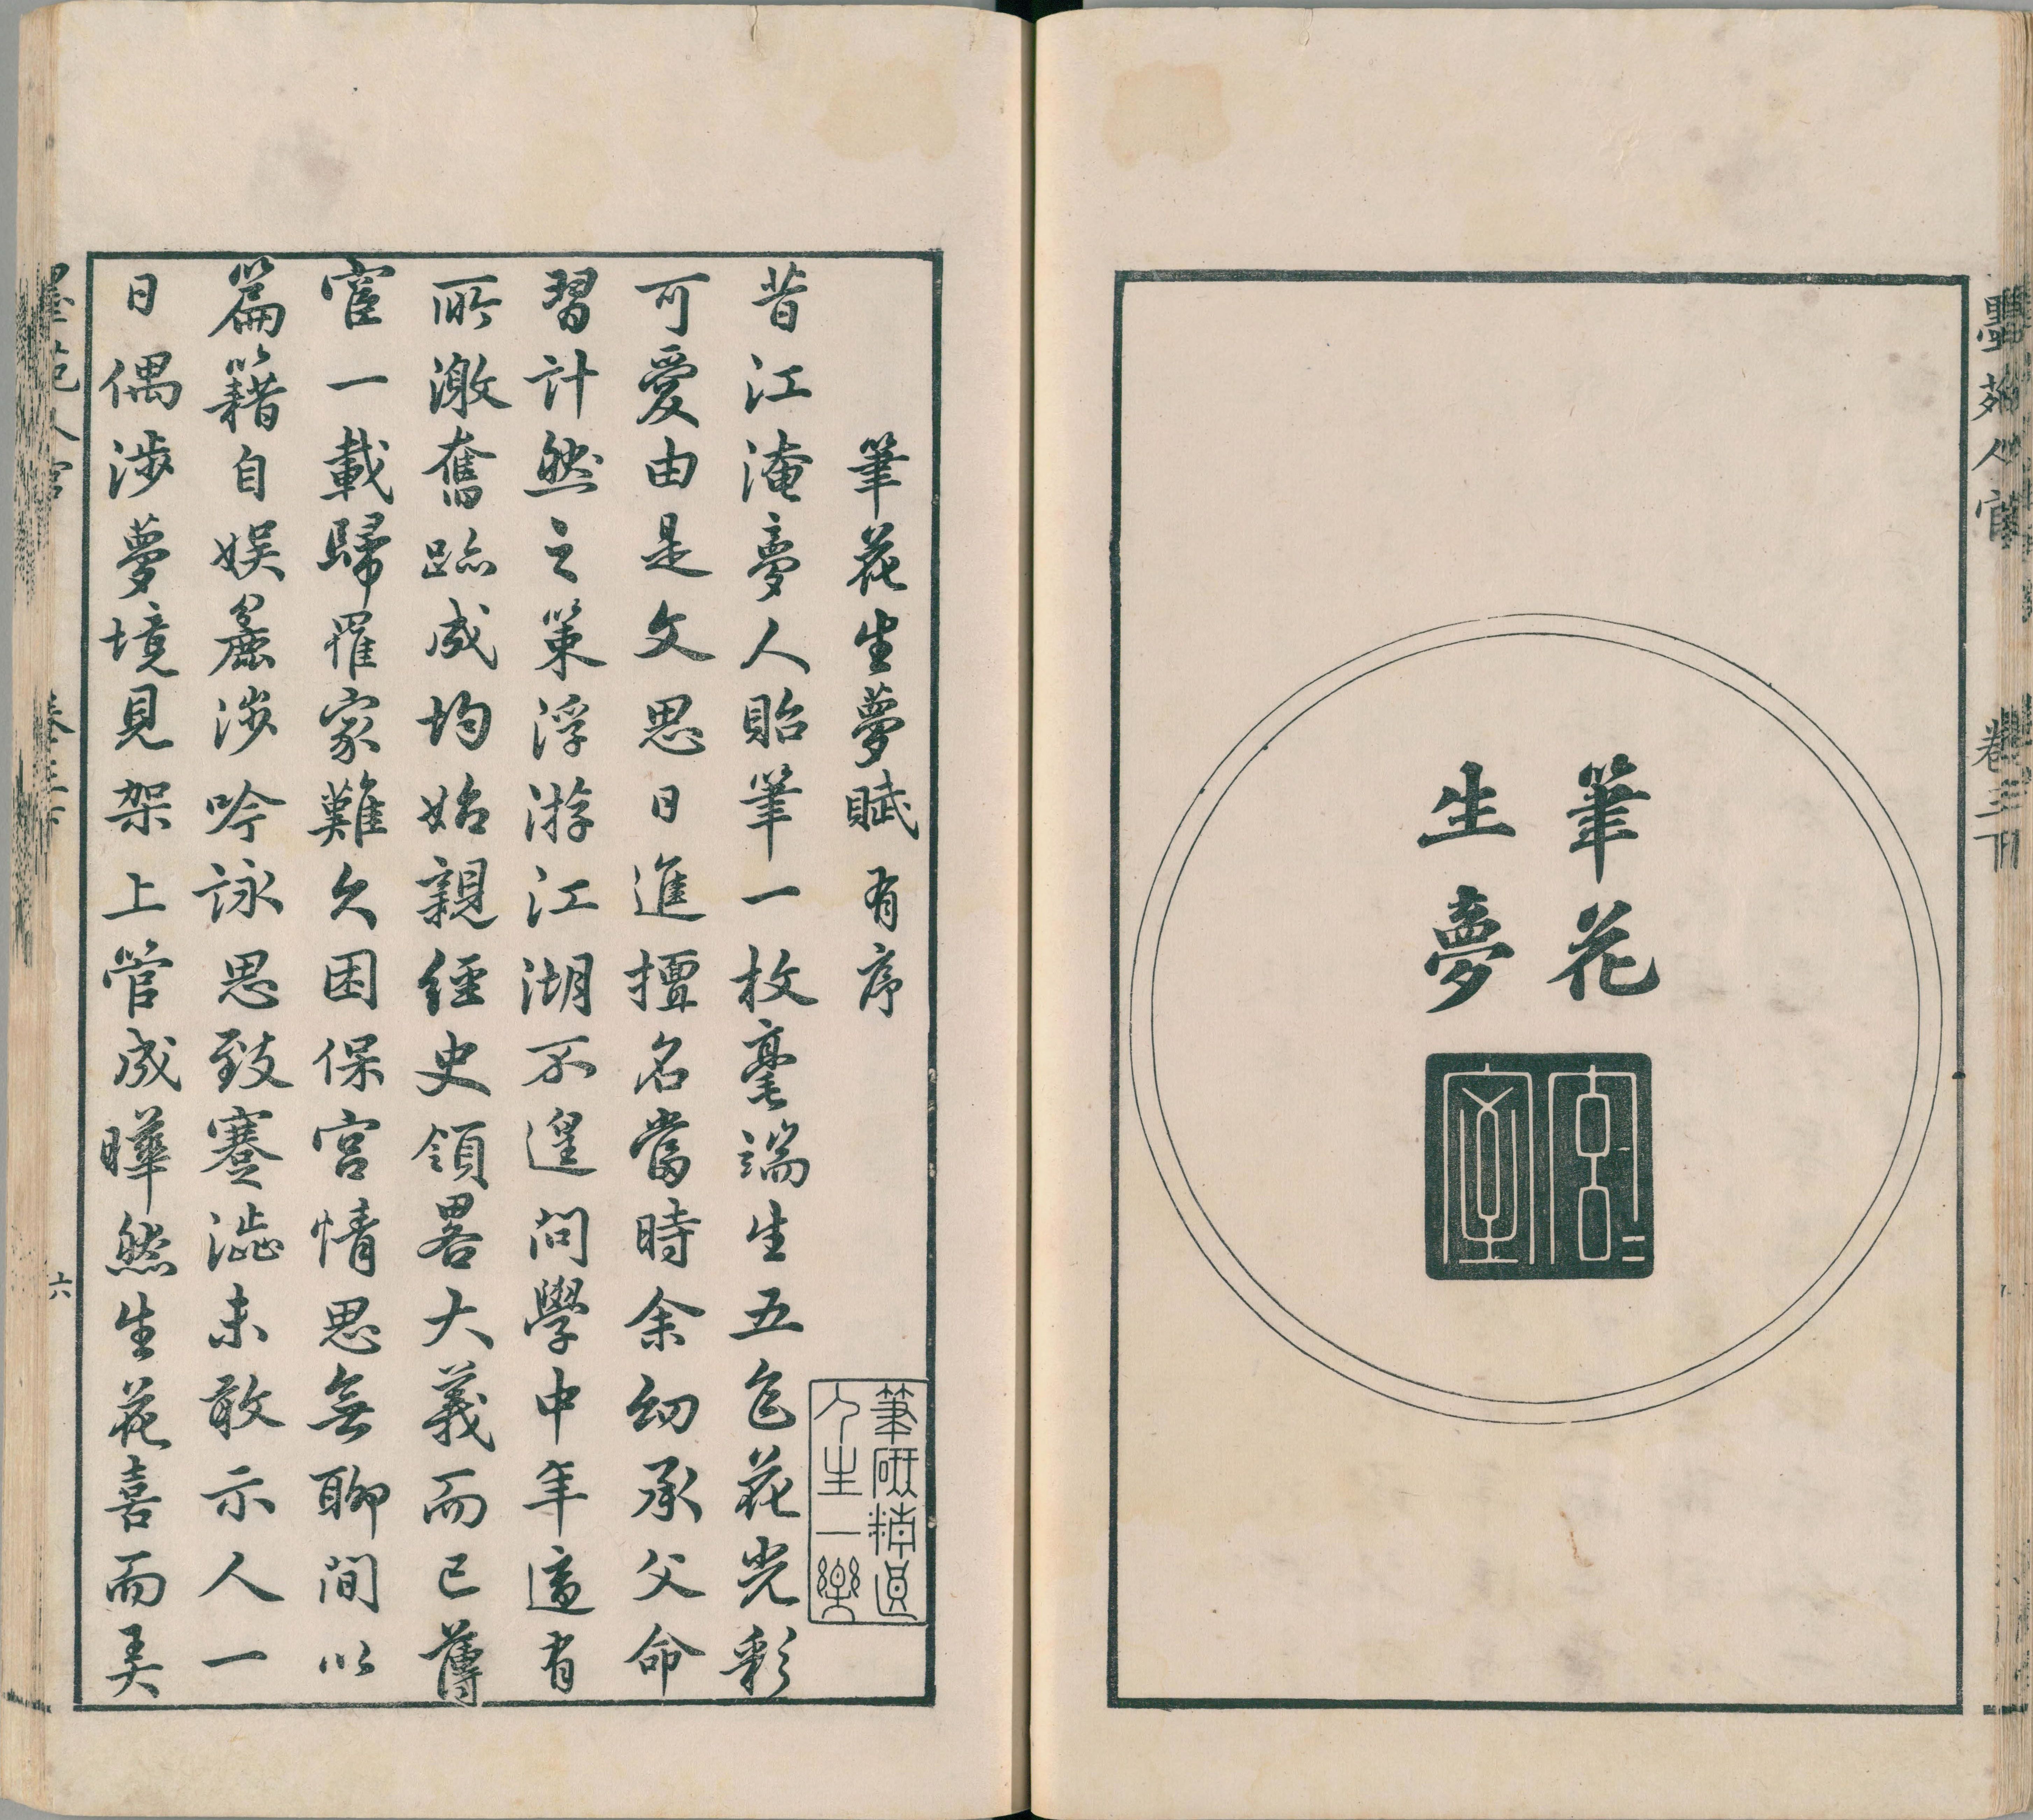 墨苑人官 卷三下
筆花
生夢
筆花生夢賦有序
筆研精良
人生一樂
昔江淹夢人貽筆一枚毫端生五色花光彩
可愛由是文思日進擅名當時余幼承父命
習計然之策浮游江湖不遑問學中年適有
所激奮跡成均始親經史領畧大義而已薄
宦一載歸罹家難久困保宮情思無聊間以
篇籍自娛麤涉吟詠思致蹇澁未敢示人一
日偶涉夢境見架上管成曄然生花喜而異
墨苑人官 卷三下 六